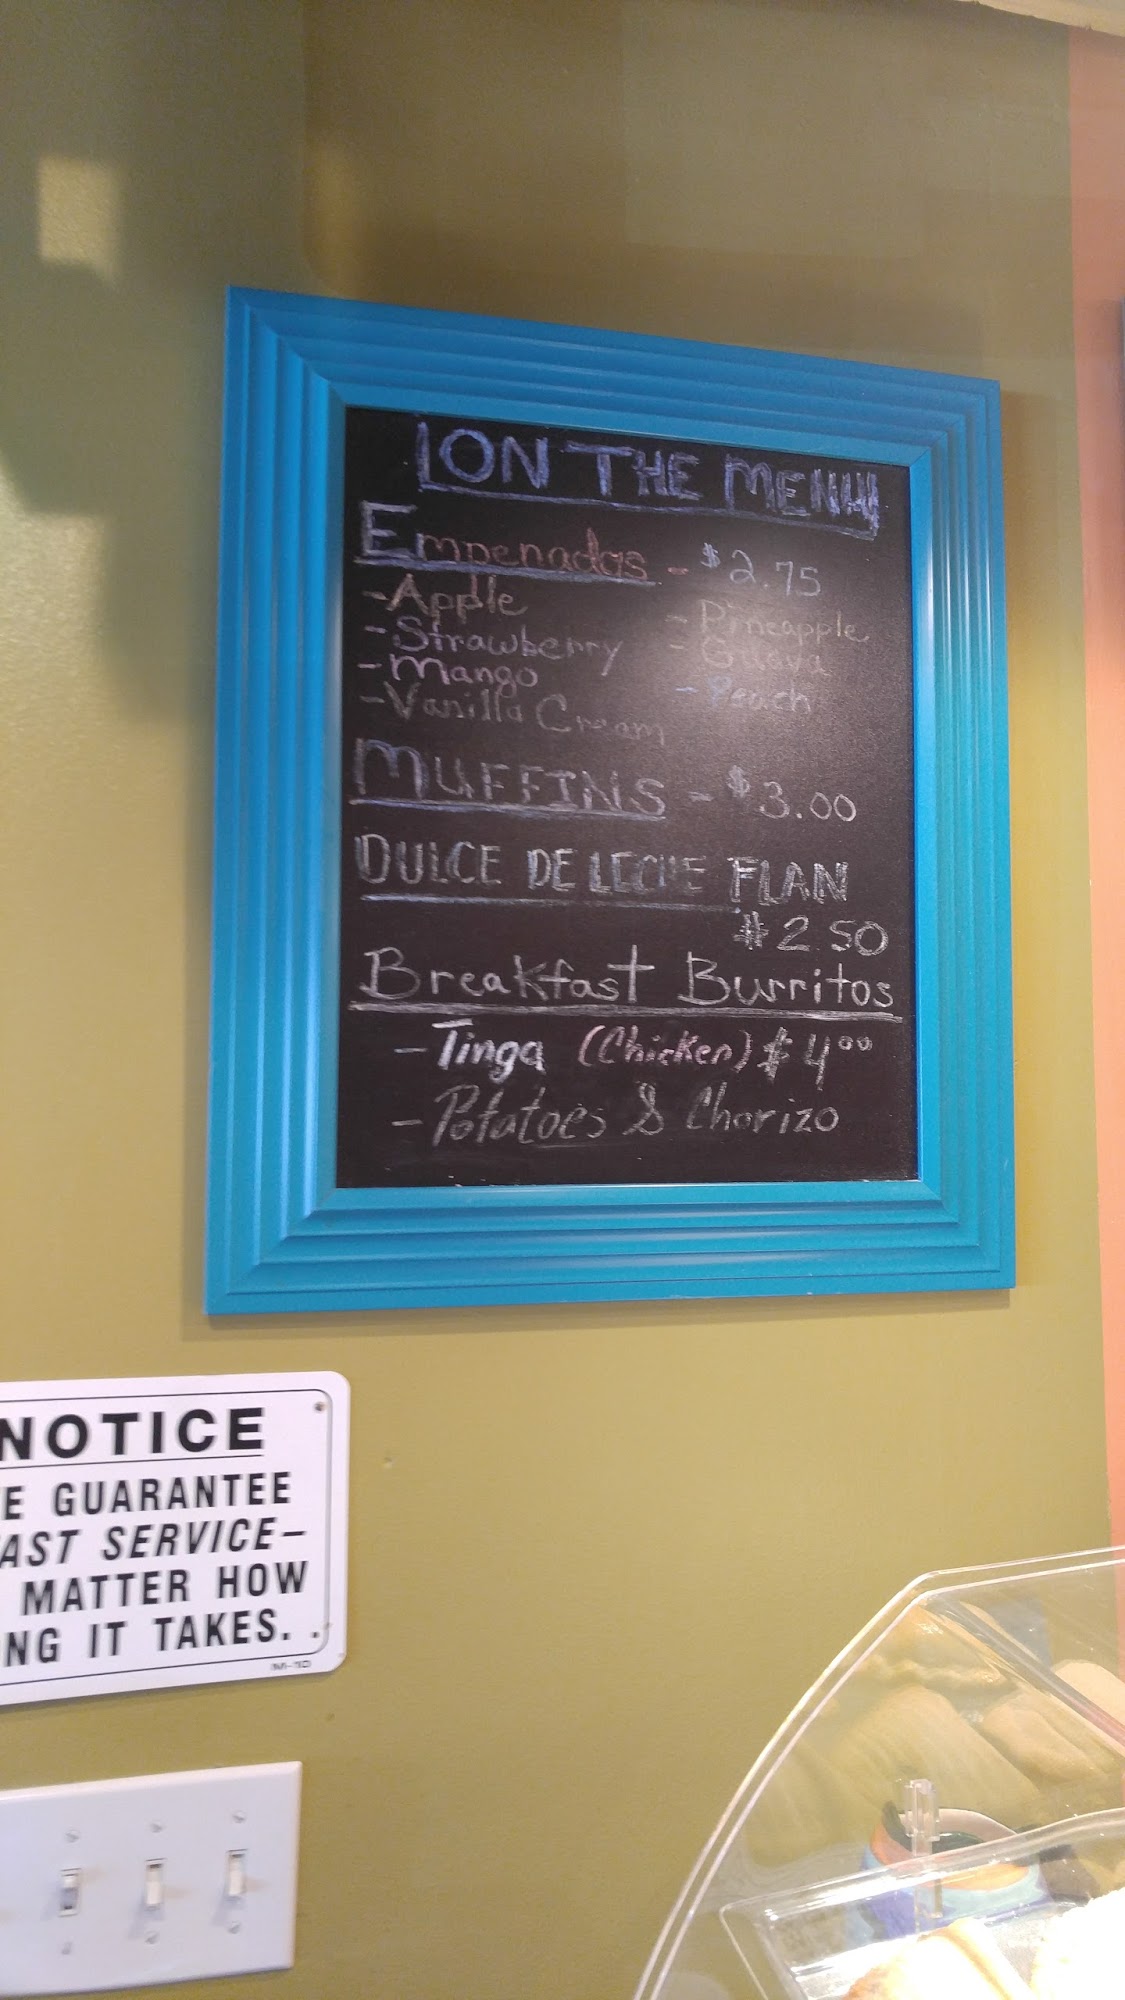 ON THE MENU
Empenadas - $2.75
- Apple
- Strawberry
- Mango
- Vanilla Cream
- Pineapple
- Guava
- Peach
MUFFINS - $3.00
DULCE DE LECHE FLAN
$2.50
Breakfast Burritos
- Tinga (Chicken) $4.00
- Potatoes & Chorizo
NOTICE
E GUARANTEE
AST SERVICE-
MATTER HOW
NG IT TAKES.
M-10